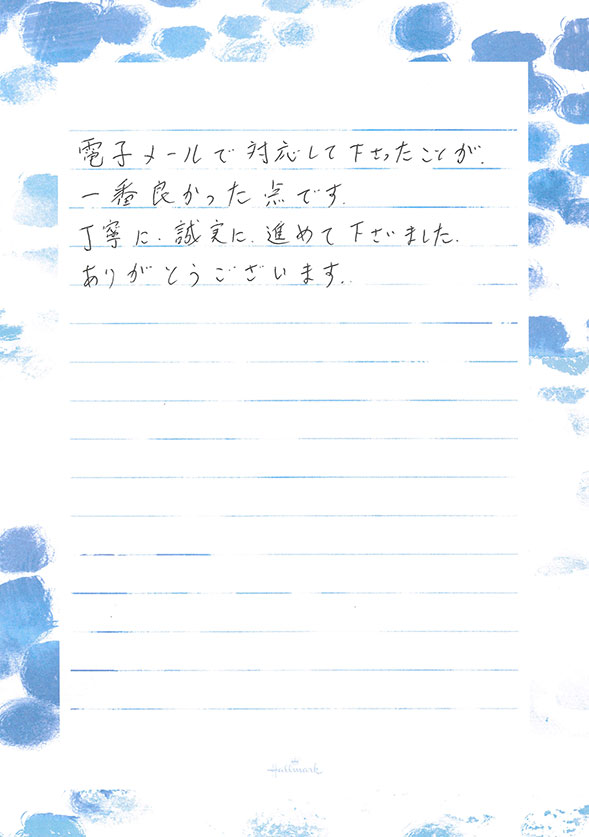 電子メールで対応して下さったことが、
一番良かった点です。
丁寧に、誠実に、進めて下さいました。
ありがとうございます。
Hallmark